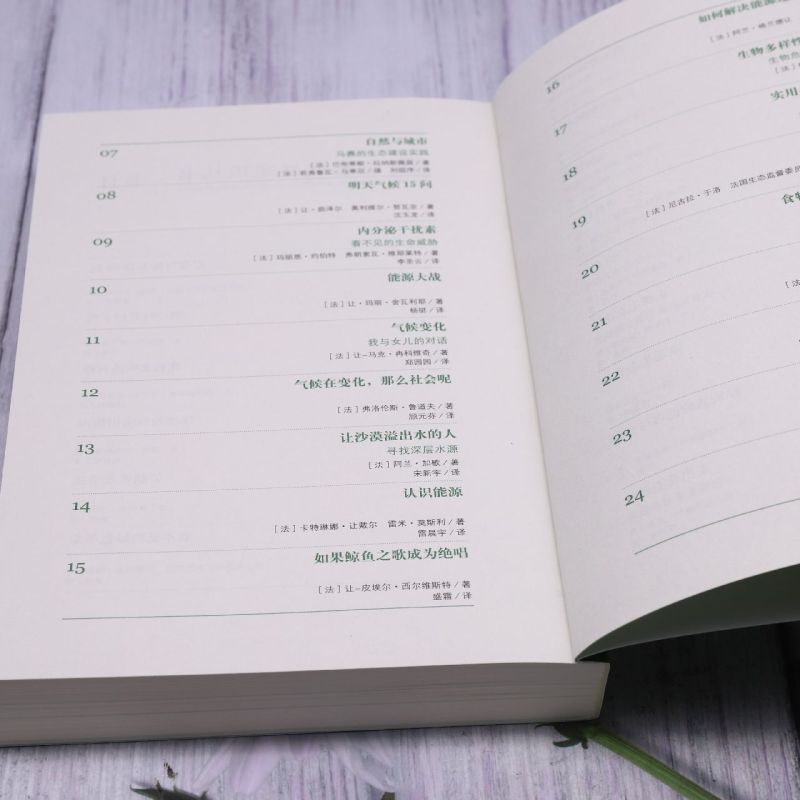 07
自然与城市
马赛的生态建设实践
［法］巴布蒂斯·拉纳斯佩兹/著
［法］若弗鲁瓦·马蒂厄/摄 刘姮序/译
08
明天气候 15 问
［法］让·茹泽尔 奥利维尔·努瓦亚/著
沈玉龙/译
09
内分泌干扰素
看不见的生命威胁
［法］玛丽恩·约伯特 弗朗索瓦·维耶莱特/著
李圣云/译
10
能源大战
［法］让·玛丽·舍瓦利耶/著
杨挺/译
11
气候变化
我与女儿的对话
［法］让-马克·冉科维奇/著
郑园园/译
12
气候在变化，那么社会呢
［法］弗洛伦斯·鲁道夫/著
顾元芬/译
13
让沙漠溢出水的人
寻找深层水源
［法］阿兰·加歇/著
宋新宇/译
14
认识能源
［法］卡特琳娜·让戴尔 雷米·莫斯利/著
雷晨宇/译
15
如果鲸鱼之歌成为绝唱
［法］让-皮埃尔·西尔维斯特/著
盛霜/译
如何解决能源
［法］阿兰·格兰德让
16
生物多样性
生物危
［法］
17
实用
18
19
［法］尼古拉·于洛 法国生态监督委员
20
食物
21
22
23
24